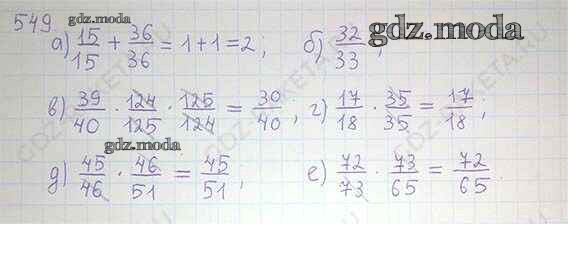 549 gdz.moda
а) 15/15 + 36/36 = 1 + 1 = 2; б) 32/33 gdz.moda
в) 39/40 · 124/125 · 125/124 = 30/40; г) 17/18 · 35/35 = 17/18;
gdz.moda
д) 45/46 · 46/51 = 45/51; е) 72/73 · 73/65 = 72/65